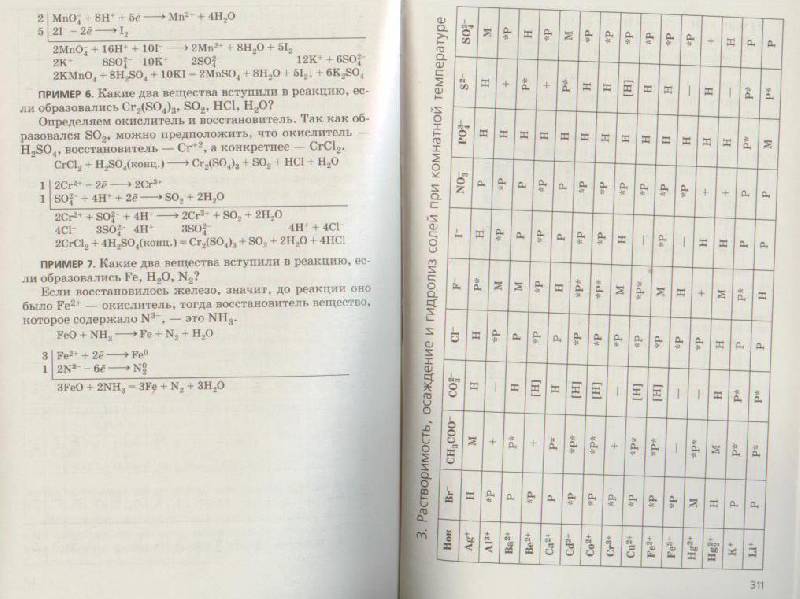 2 MnO₄⁻ + 8H⁺ + 5ē ⟶ Mn²⁺ + 4H₂O
5 2I⁻ – 2ē ⟶ I₂
2MnO₄⁻ + 16H⁺ + 10I⁻ ⟶ 2Mn²⁺ + 8H₂O + 5I₂
2K⁺ 8SO₄²⁻ 10K⁺ 2SO₄²⁻ 12K⁺ + 6SO₄²⁻
2KMnO₄ + 8H₂SO₄ + 10KI = 2MnSO₄ + 8H₂O + 5I₂↓ + 6K₂SO₄
ПРИМЕР 6. Какие два вещества вступили в реакцию, ес-
ли образовались Cr₂(SO₄)₃, SO₂, HCl, H₂O?
Определяем окислитель и восстановитель. Так как об-
разовался SO₂, можно предположить, что окислитель —
H₂SO₄, восстановитель — Cr⁺², а конкретнее — CrCl₂.
CrCl₂ + H₂SO₄(конц.) ⟶ Cr₂(SO₄)₃ + SO₂ + HCl + H₂O
1 2Cr²⁺ – 2ē ⟶ 2Cr³⁺
1 SO₄²⁻ + 4H⁺ + 2ē ⟶ SO₂ + 2H₂O
2Cr²⁺ + SO₄²⁻ + 4H⁺ ⟶ 2Cr³⁺ + SO₂ + 2H₂O
4Cl⁻ 3SO₄²⁻ 4H⁺ 3SO₄²⁻ 4H⁺ + 4Cl⁻
2CrCl₂ + 4H₂SO₄(конц.) = Cr₂(SO₄)₃ + SO₂ + 2H₂O + 4HCl
ПРИМЕР 7. Какие два вещества вступили в реакцию, ес-
ли образовались Fe, H₂O, N₂?
Если восстановилось железо, значит, до реакции оно
было Fe²⁺ — окислитель, тогда восстановитель вещество,
которое содержало N³⁻, — это NH₃.
FeO + NH₃ ⟶ Fe + N₂ + H₂O
3 Fe²⁺ + 2ē ⟶ Fe⁰
1 2N³⁻ – 6ē ⟶ N₂⁰
3FeO + 2NH₃ = 3Fe + N₂ + 3H₂O
3. Растворимость, осаждение и гидролиз солей при комнатной температуре
Ион Br⁻ CH₃COO⁻ CO₃²⁻ Cl⁻ F⁻ I⁻ NO₃⁻ PO₄³⁻ S²⁻ SO₄²⁻
Ag⁺ Н М Н Н Р* Н Р Н Н М
Al³⁺ *Р + — *Р М *Р *Р Н + *Р
Ba²⁺ Р Р* Н Р М Р Р Н Р* Н
Be²⁺ *Р + [Н] *Р *Р *Р *Р Н + *Р
Ca²⁺ Р Р* Н Р Н Р Р Н Р* М
Cd²⁺ *Р *Р* [Н] *Р *Р* *Р *Р Н Н *Р
Co²⁺ *Р *Р* [Н] *Р *Р* *Р *Р Н Н *Р
Cr³⁺ *Р + — *Р М Н *Р Н *Р
Cu²⁺ *Р *Р* [Н] *Р *Р* — *Р Н [Н] *Р
Fe²⁺ *Р *Р* [Н] *Р М *Р *Р Н Н *Р
Fe³⁺ *Р — — *Р Н — *Р Н — *Р
Hg²⁺ М *Р* — *Р + Н + Н Н +
Hg₂²⁺ Н М Н Н М Н + Н — Н
K⁺ Р Р* Р* Р Р* Р Р Р* Р* Р
Li⁺ Р Р* Р* Р Н Р Р М Р* Р
311